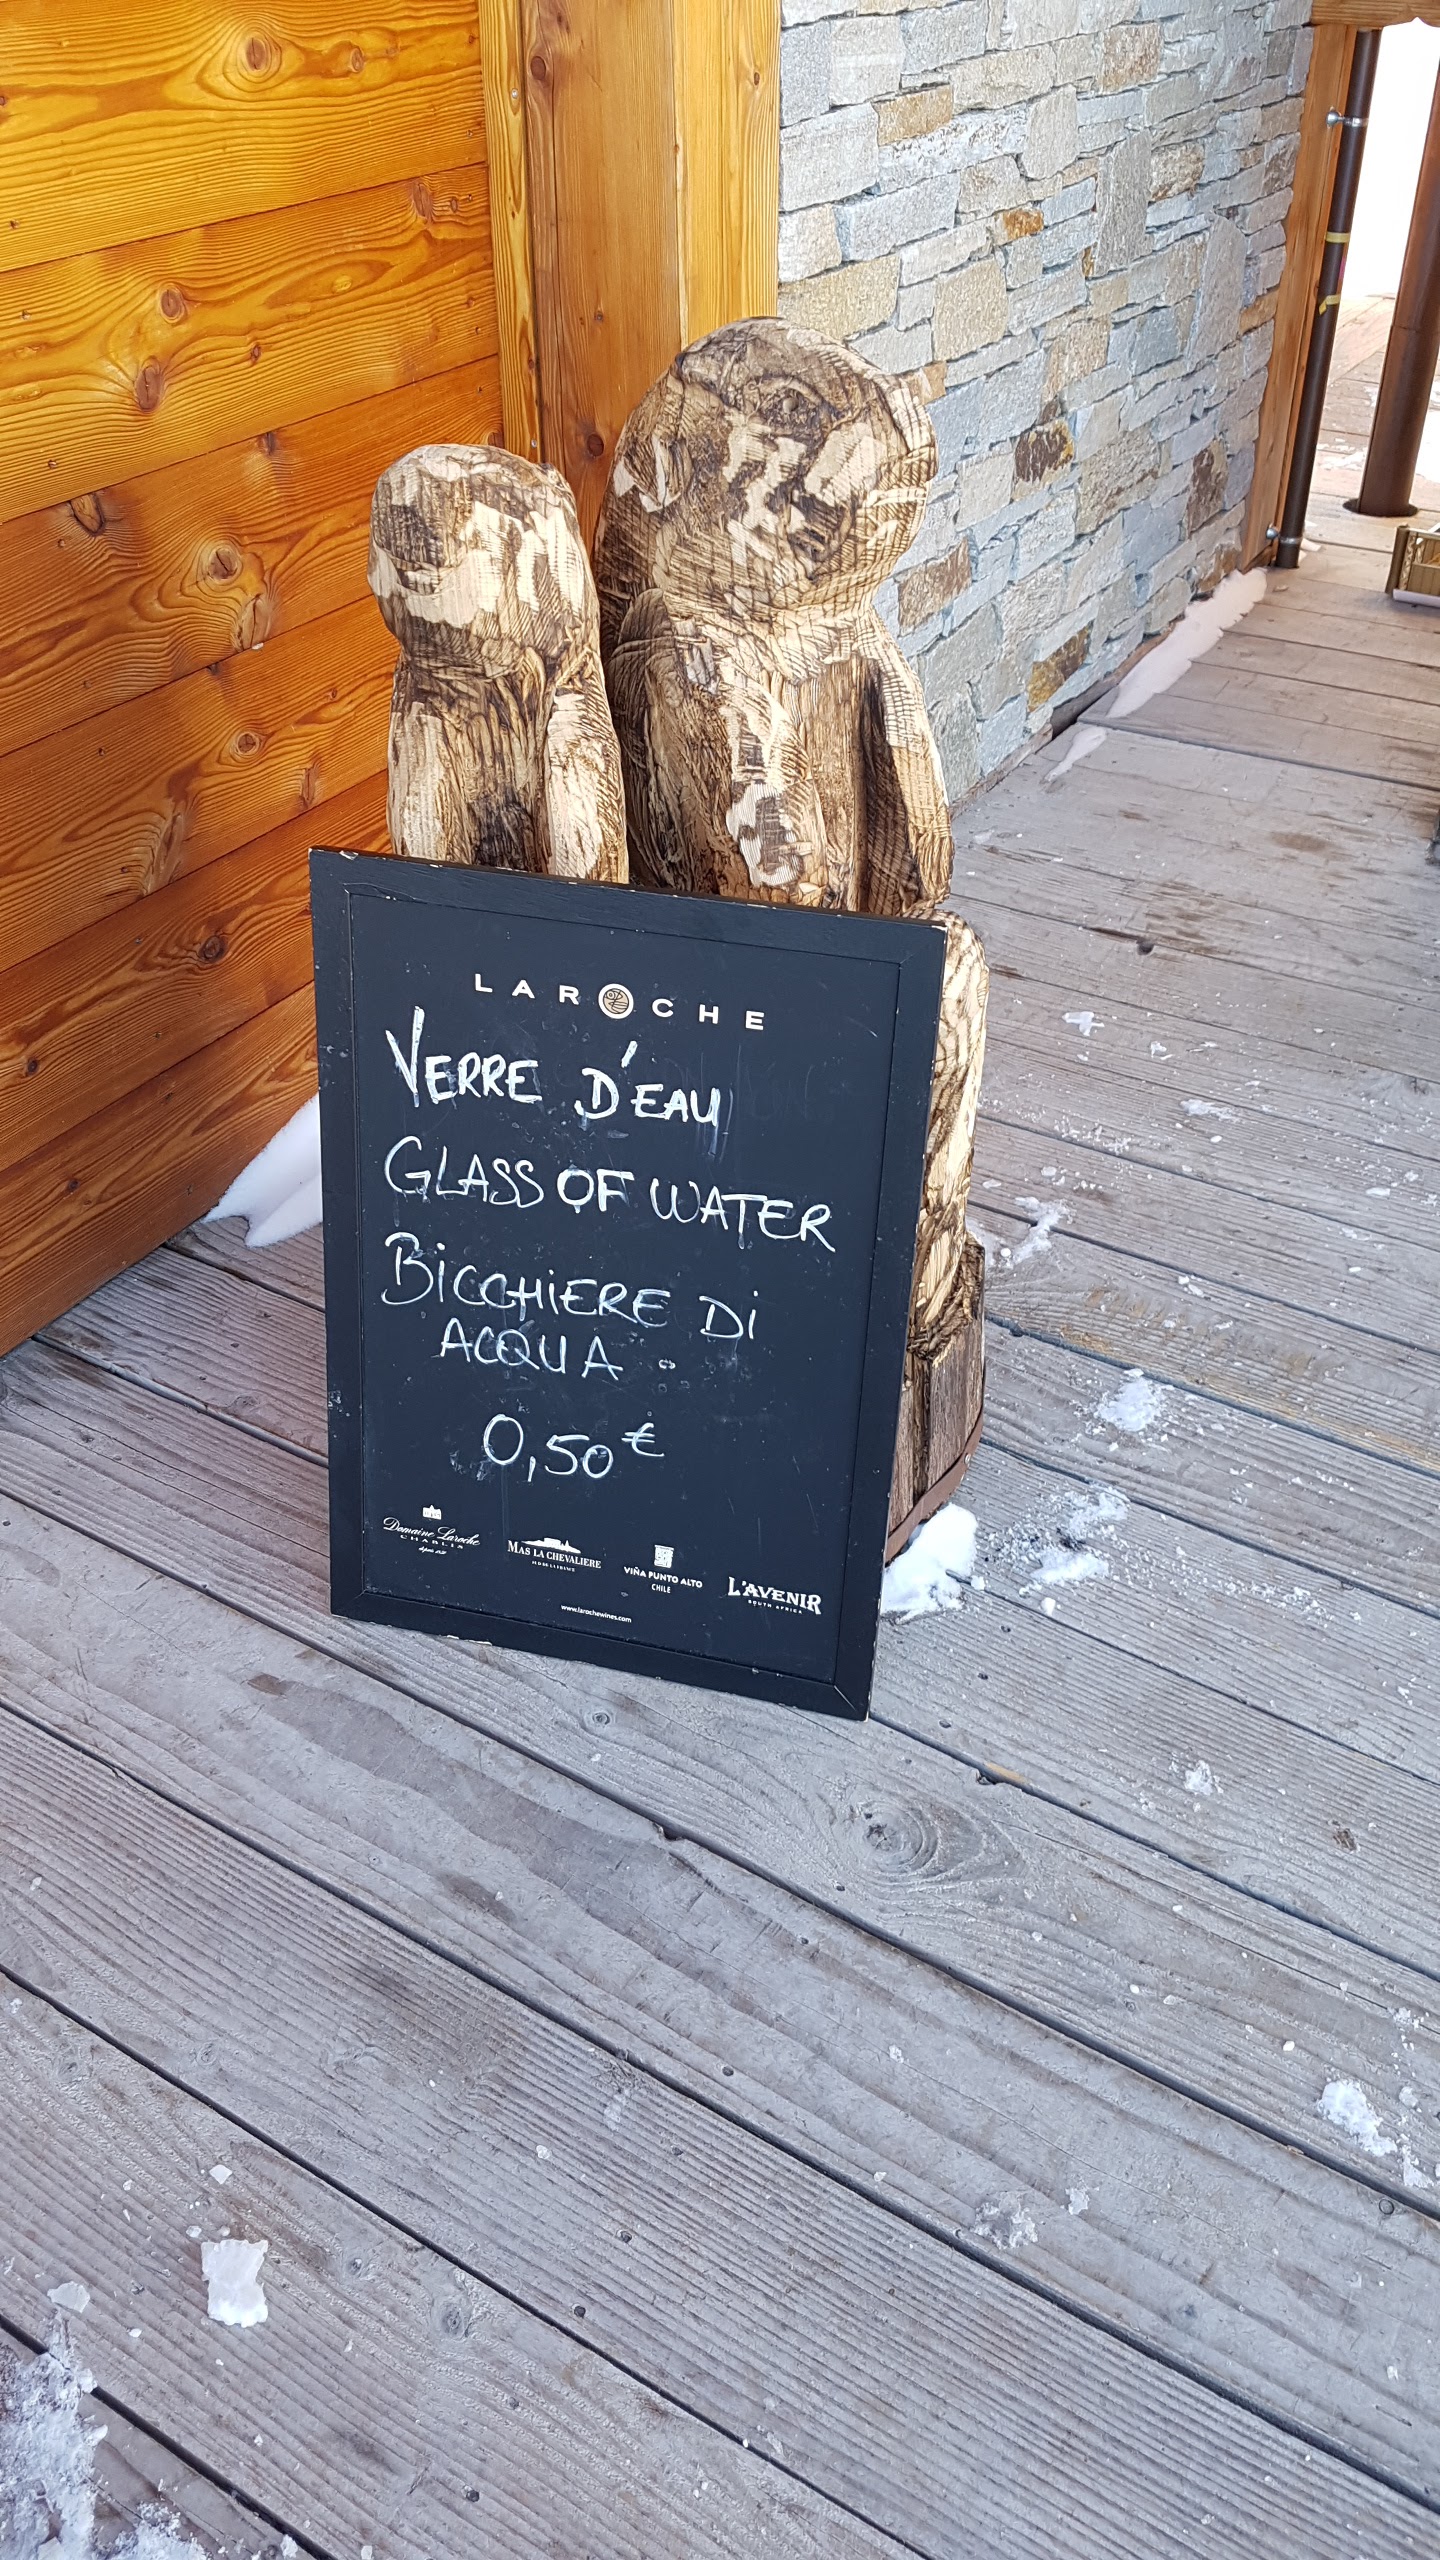 LAROCHE
VERRE D'EAU
GLASS OF WATER
BICCHIERE DI
ACQUA
0,50€
Domaine Laroche
CHABLIS
MAS LA CHEVALIERE
VIÑA PUNTO ALTO
CHILE
L'AVENIR
SOUTH AFRICA
www.larochewines.com